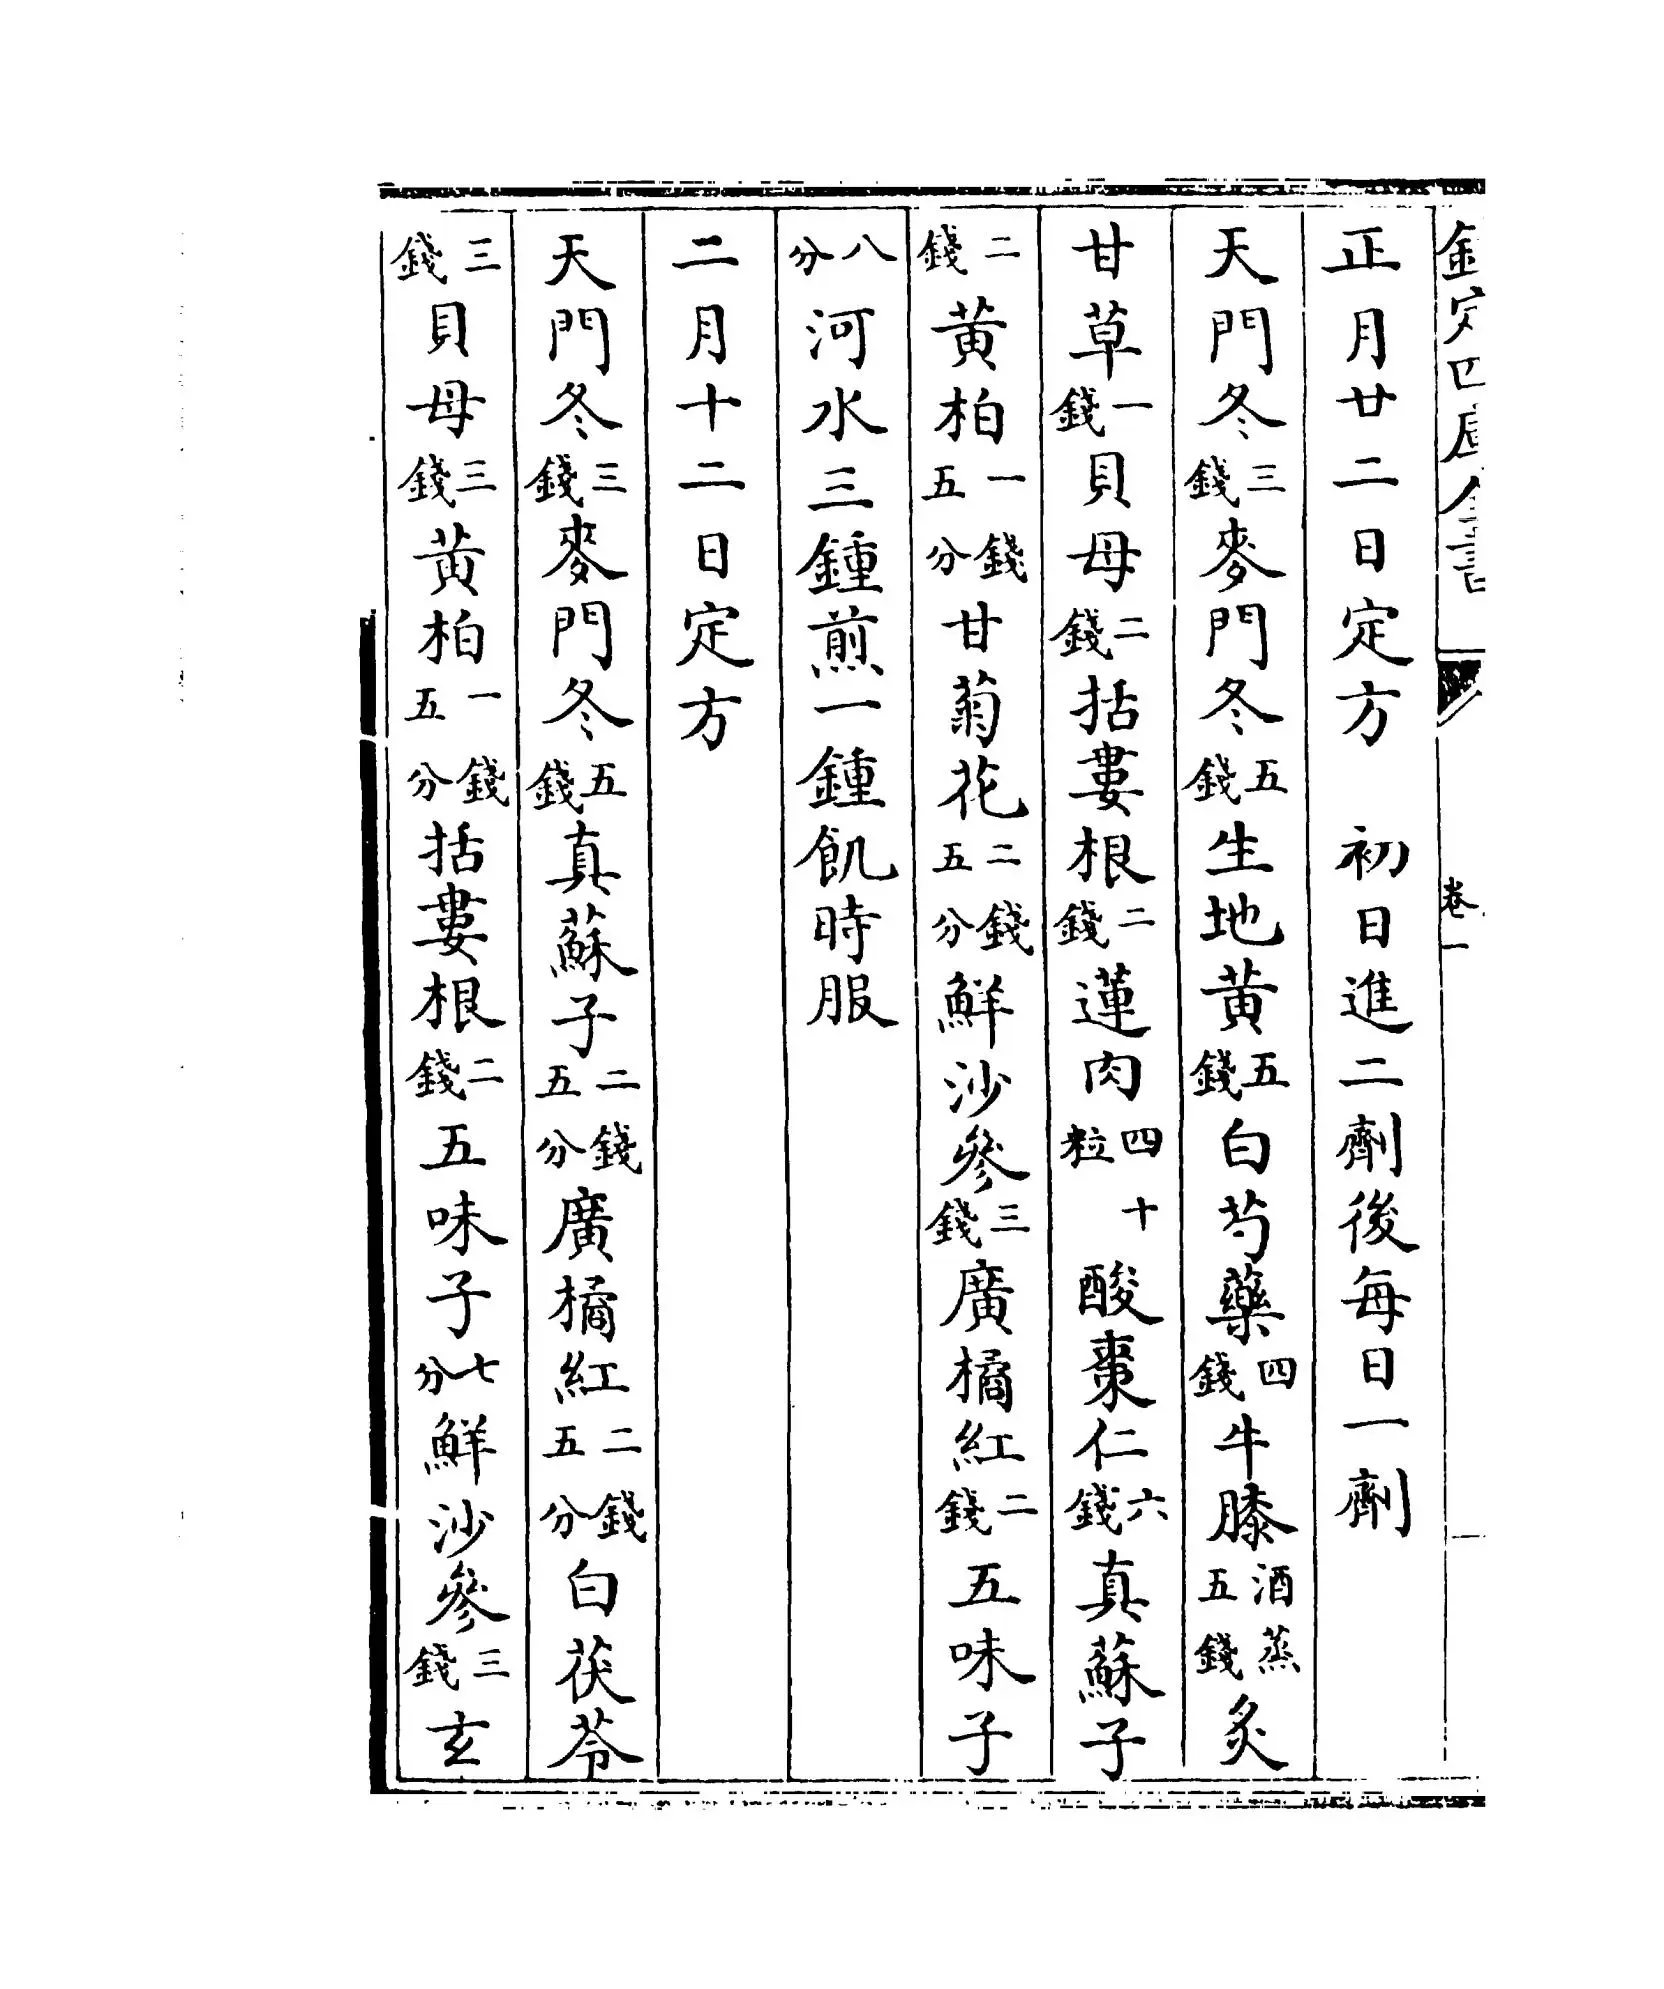 欽定四庫全書
卷一
正月廿二日定方　初日進二劑後每日一劑
天門冬三錢麥門冬五錢生地黃五錢白芍藥四錢牛膝酒蒸五錢炙
甘草一錢貝母二錢括蔞根二錢蓮肉四十粒酸棗仁六錢真蘇子
二錢黃柏一錢五分甘菊花二錢五分鮮沙參三錢廣橘紅二錢五味子
八分河水三鍾煎一鍾飢時服
二月十二日定方
天門冬三錢麥門冬五錢真蘇子二錢五分廣橘紅二錢五分白茯苓
三錢貝母三錢黃柏一錢五分括蔞根二錢五味子七分鮮沙參三錢玄